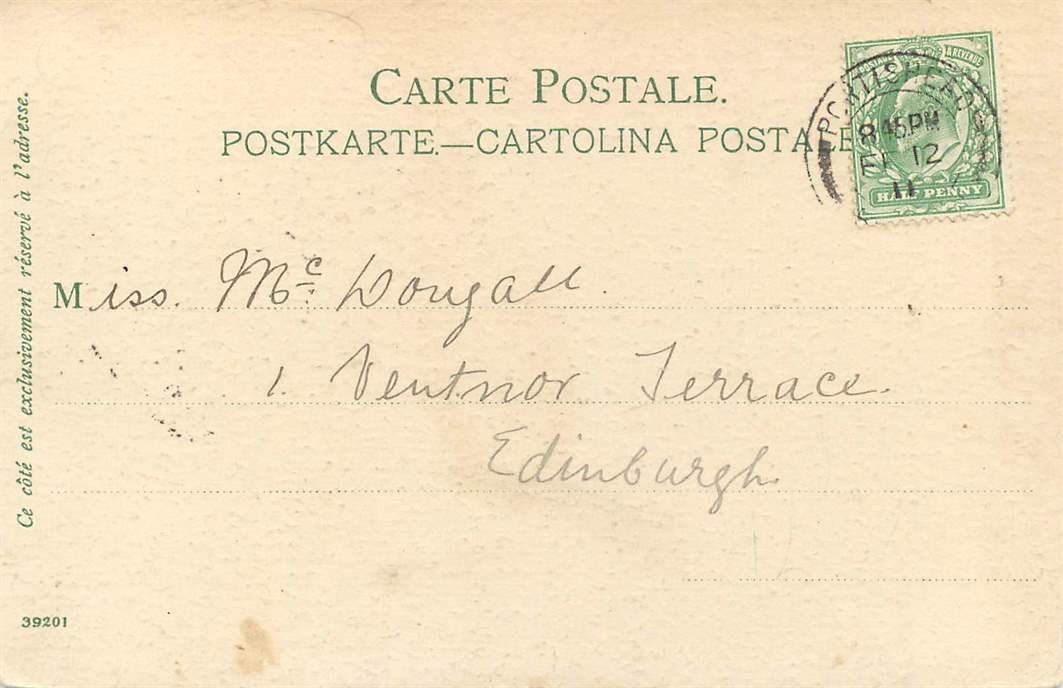 CARTE POSTALE.
POSTKARTE.—CARTOLINA POSTALE
POSTAGE & REVENUE
HALF PENNY
8 45 PM
12
11
Ce côté est exclusivement réservé à l'adresse.
Miss. Mc Dougall.
1. Ventnor Terrace.
Edinburgh.
39201